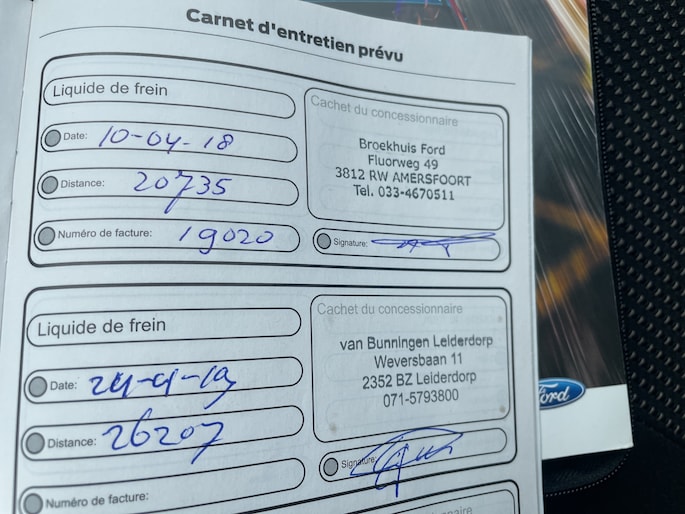 Carnet d'entretien prévu
Liquide de frein
Date: 10-04-18
Distance: 20735
Numéro de facture: 19020
Cachet du concessionnaire
Broekhuis Ford
Fluorweg 49
3812 RW AMERSFOORT
Tel. 033-4670511
Signature:
Liquide de frein
Date: 24-4-19
Distance: 26207
Numéro de facture:
Cachet du concessionnaire
van Bunningen Leiderdorp
Weversbaan 11
2352 BZ Leiderdorp
071-5793800
Signature:
Cachet du concessionnaire
Ford